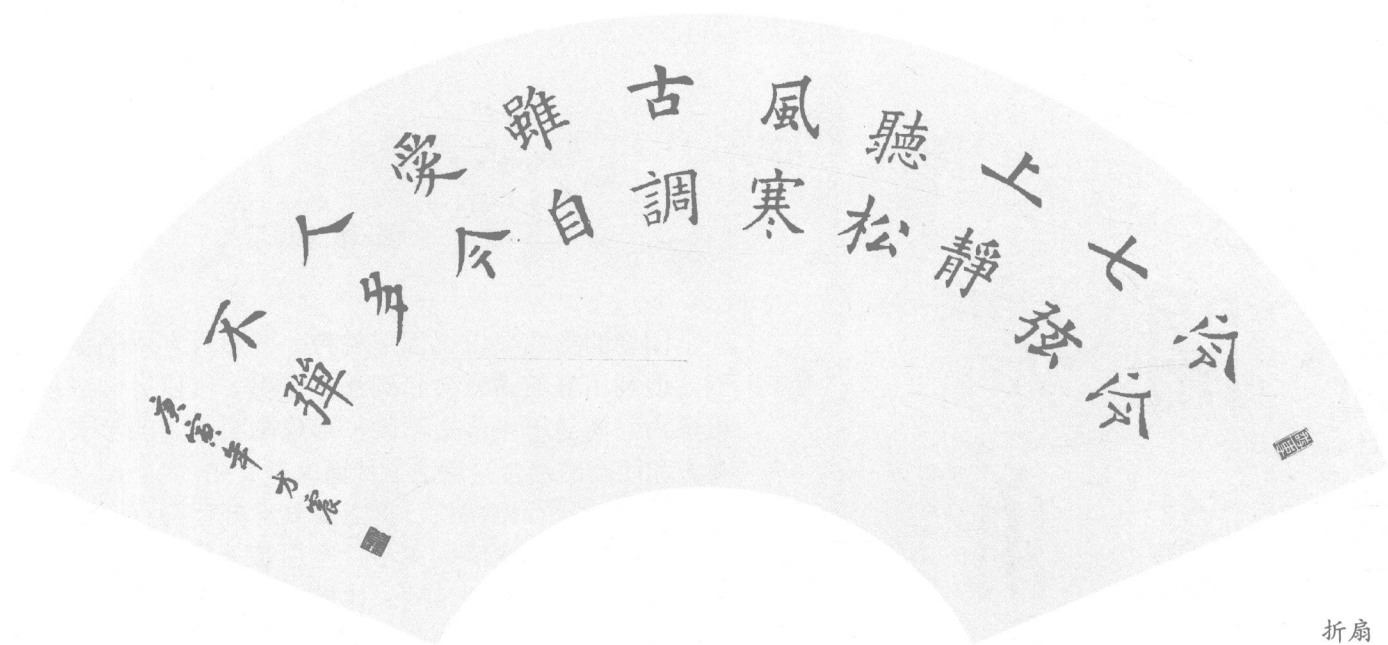 泠泠
七弦
上靜
聽松
風寒
古調
雖自
愛今
人多
不彈
庚寅年方
折扇